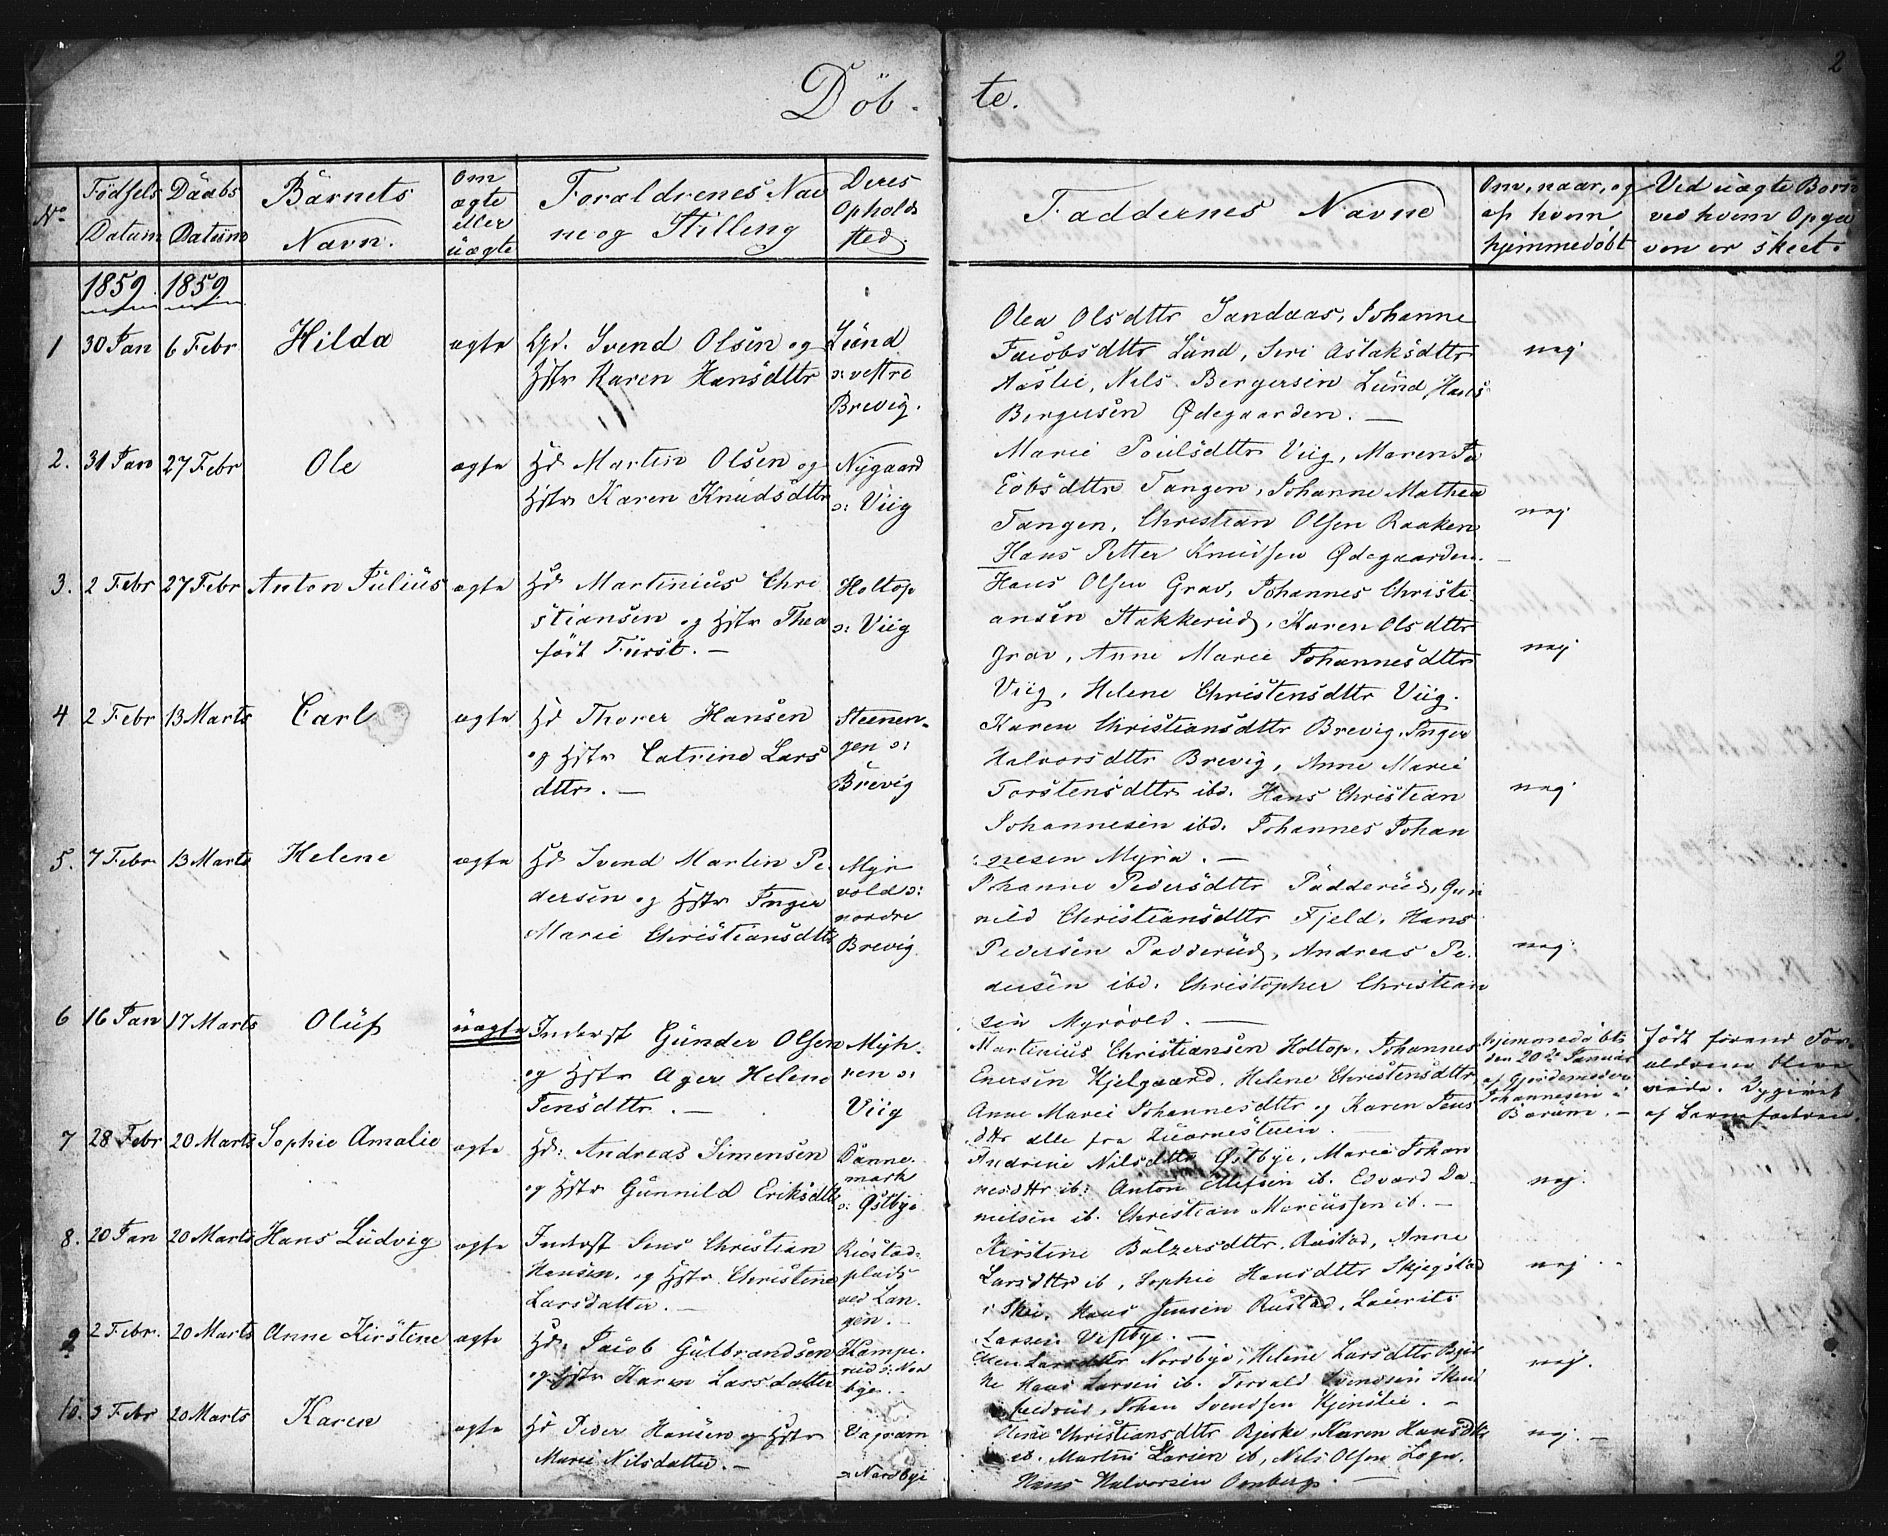 2
Döb-te.
No
Födsels Datum
Daabs Datum
Barnets Navn.
om ægte eller uægte
Foraldrenes Navne og Stilling
Deres Opholdsted.
Faddernes Navne
Om, naar, og af hvem hjemmedöbt
Ved uægte Börn ved hvem Opgaven er skeet.
1859. 1859.
1 30 Jan 6 Febr Hilda ægte
Gd. Svend Olsen og
Hstr Karen Hansdttr
Lund
o: vestre
Brevig.
Olea Olsdttr Sandaas, Johanne
Jacobsdttr Lund, Siri Aslaksdttr
Aaslie, Nils Bergersen Lund, Hans
Bergersen Ødegaarden. —
nej
2. 31 Jan 27 Febr Ole ægte
Hd Martin Olsen og
Hstr Karen Knudsdttr
Nygaard
o: Viig
Marie Poulsdttr Viig, Maren Ja
cobsdttr Tangen, Johanne Mathea
Tangen, Christian Olsen Raaken
Hans Petter Knudsen Ødegaarden. —
nej
3. 2 Febr 27 Febr Anton Julius ægte
Hd Martinius Chri
stiansen og Hstr Thea
födt Fürst. —
Holtop
o: Viig
Hans Olsen Grav, Johannes Christi
ansen Stakkerud, Karen Olsdttr
Grav, Anne Marie Johannesdttr
Viig, Helene Christensdttr Viig.
nej
4 2 Febr 13 Marts Carl ægte
Hd Thorer Hansen
og Hstr Catrine Lars
dttr. —
Steenen-
gen o:
Brevig
Karen Christiansdttr Brevig, Inger
Halvorsdttr Brevig, Anne Marie
Torstensdttr ibd. Hans Christian
Johannesen ibd. Johannes Johan
nesen Myra. —
nej
5. 7 Febr 13 Marts Helene ægte
Hd Svend Martin Pe
dersen og Hstr Inger
Marie Christiansdttr
Myr
vold o:
nordre
Brevig
Johanne Pedersdttr Padderud, Gun
nild Christiansdttr Fjeld, Hans
Pedersen Padderud, Andreas Pe
dersen ibd. Christopher Christian
sen Myrvold. —
nej
6 16 Jan 17 Marts Oluf uægte
Inderst Gunder Olsen
og Hstr Ager Helene
Jensdttr. —
Myh-
ren o:
Viig
Martinius Christiansen Holtop, Johannes
Enersen Kjelgaard, Helene Christensdttr
Anne Marie Johannesdttr og Karen Jens
dttr alle fra
hjemmedöbt
den 20de Januar
af Gjordemoder
Johannesen i
Bærum. —
födt forend For-
aldrene bleve
viede. Opgivet
af Barnefaderen.
7 28 Febr 20 Marts Sophie Amalie ægte
Hd: Andreas Simensen
og Hstr Gunnild Eriksdttr
Danne-
mark
o: Østbye
Andrine Nilsdttr Østbye, Marie Johan
nesdttr ib. Anton Ellefsen ib. Edvard Da-
nielsen ib. Christian Marcussen ib. —
nej.
8. 20 Jan 20 Marts Hans Ludvig ægte
Inderst Jens Christian
Hansen, og Hstr Christine
Larsdatter. —
Rustad-
plads
ved Lan-
gen. —
Kirstine Balzersdttr Rustad, Anne
Larsdttr ib, Sophie Hansdttr Skjegstad
i Skie, Hans Jensen Rustad, Laurits
Larsen Vestbye. —
nej
9 2 Febr. 20 Marts Anne Kirstene ægte
Hd. Jacob Gulbrandsen
og Hstr Karen Larsdatter
Kampe-
rud o: Nor
bye.
Ellen Larsdttr Nordbye, Helene Larsdttr Bjer
ke Hans Larsen ib. Torvald Svendsen
Johan Svendsen Kjenslie. —
nej.
10. 3 Febr 20 Marts Karen ægte
Hd Peder Hansen og Hstr
Marie Nilsdatter. —
Vajoram
o: Nordbye
Christiansdttr Bjerke, Karen Hansdttr
ib. Martin Larsen ib, Nils Olsen
Hans Halvorsen
nej. —